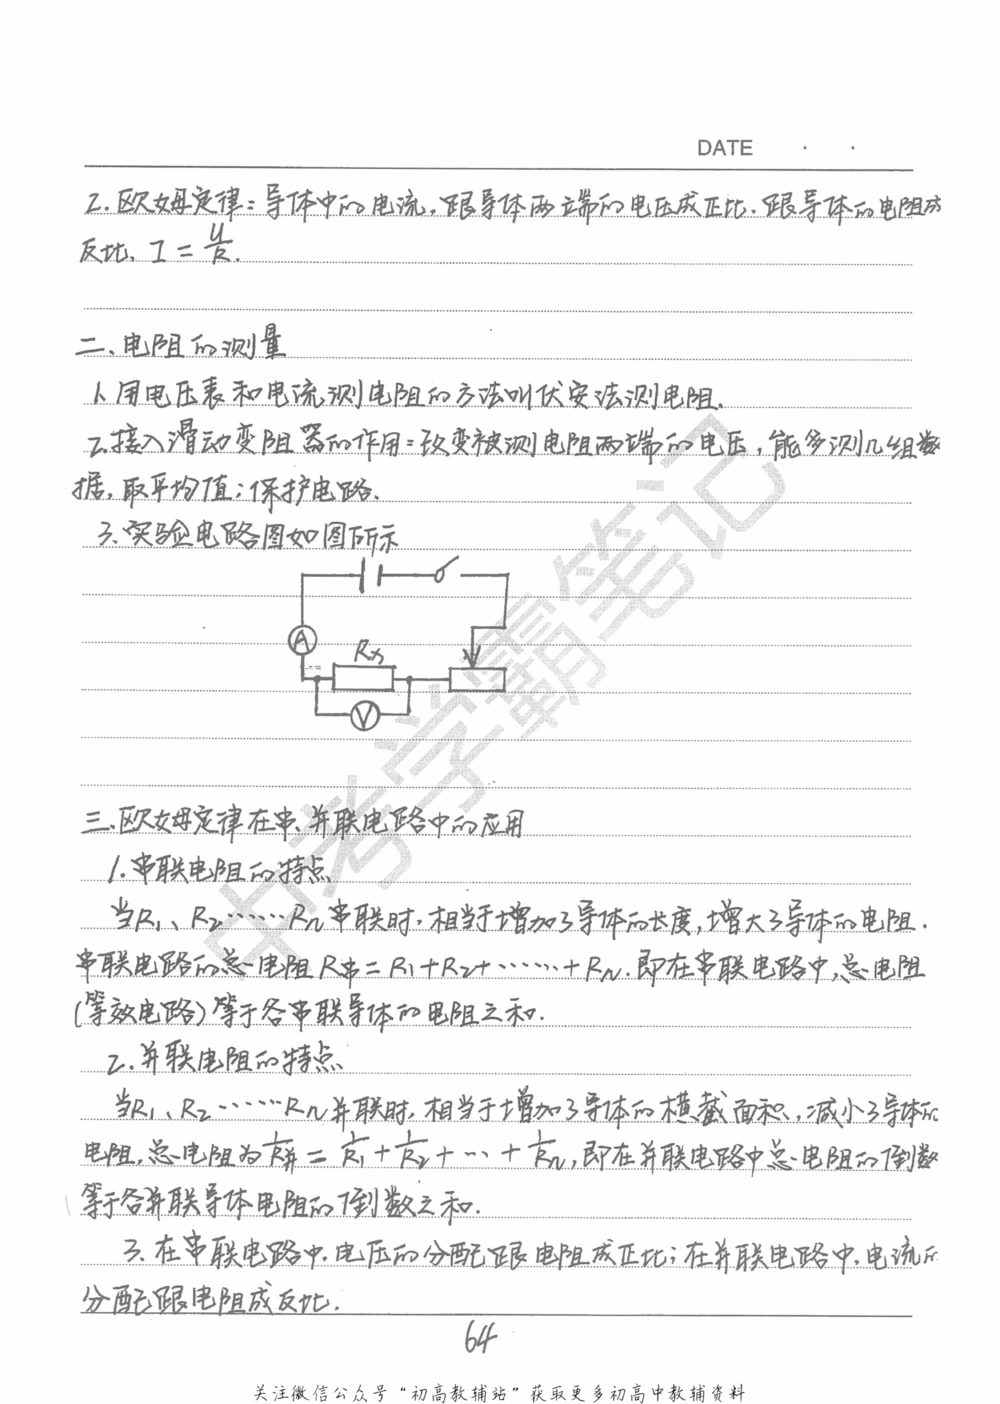 DATE · ·
2.欧姆定律:导体中的电流,跟导体两端的电压成正比.跟导体的电阻成
反比, I = U/R.
二、电阻的测量
1.用电压表和电流测电阻的方法叫伏安法测电阻.
2.接入滑动变阻器的作用:改变被测电阻两端的电压,能多测几组数
据,取平均值;保护电路.
3.实验电路图如图所示
A
Rx
V
三.欧姆定律在串、并联电路中的应用
1.串联电阻的特点
当R1、R2……Rn串联时,相当于增加了导体的长度,增大了导体的电阻.
串联电路的总电阻R串=R1+R2+……+Rn.即在串联电路中,总电阻
(等效电路)等于各串联导体的电阻之和.
2.并联电阻的特点
当R1、R2……Rn并联时,相当于增加了导体的横截面积,减小了导体的
电阻,总电阻为1/R并=1/R1+1/R2+…+1/Rn,即在并联电路中总电阻的倒数
等于各并联导体电阻的倒数之和.
3.在串联电路中,电压的分配跟电阻成正比;在并联电路中,电流的
分配跟电阻成反比.
64
中考学霸笔记
关注微信公众号“初高教辅站”获取更多初高中教辅资料